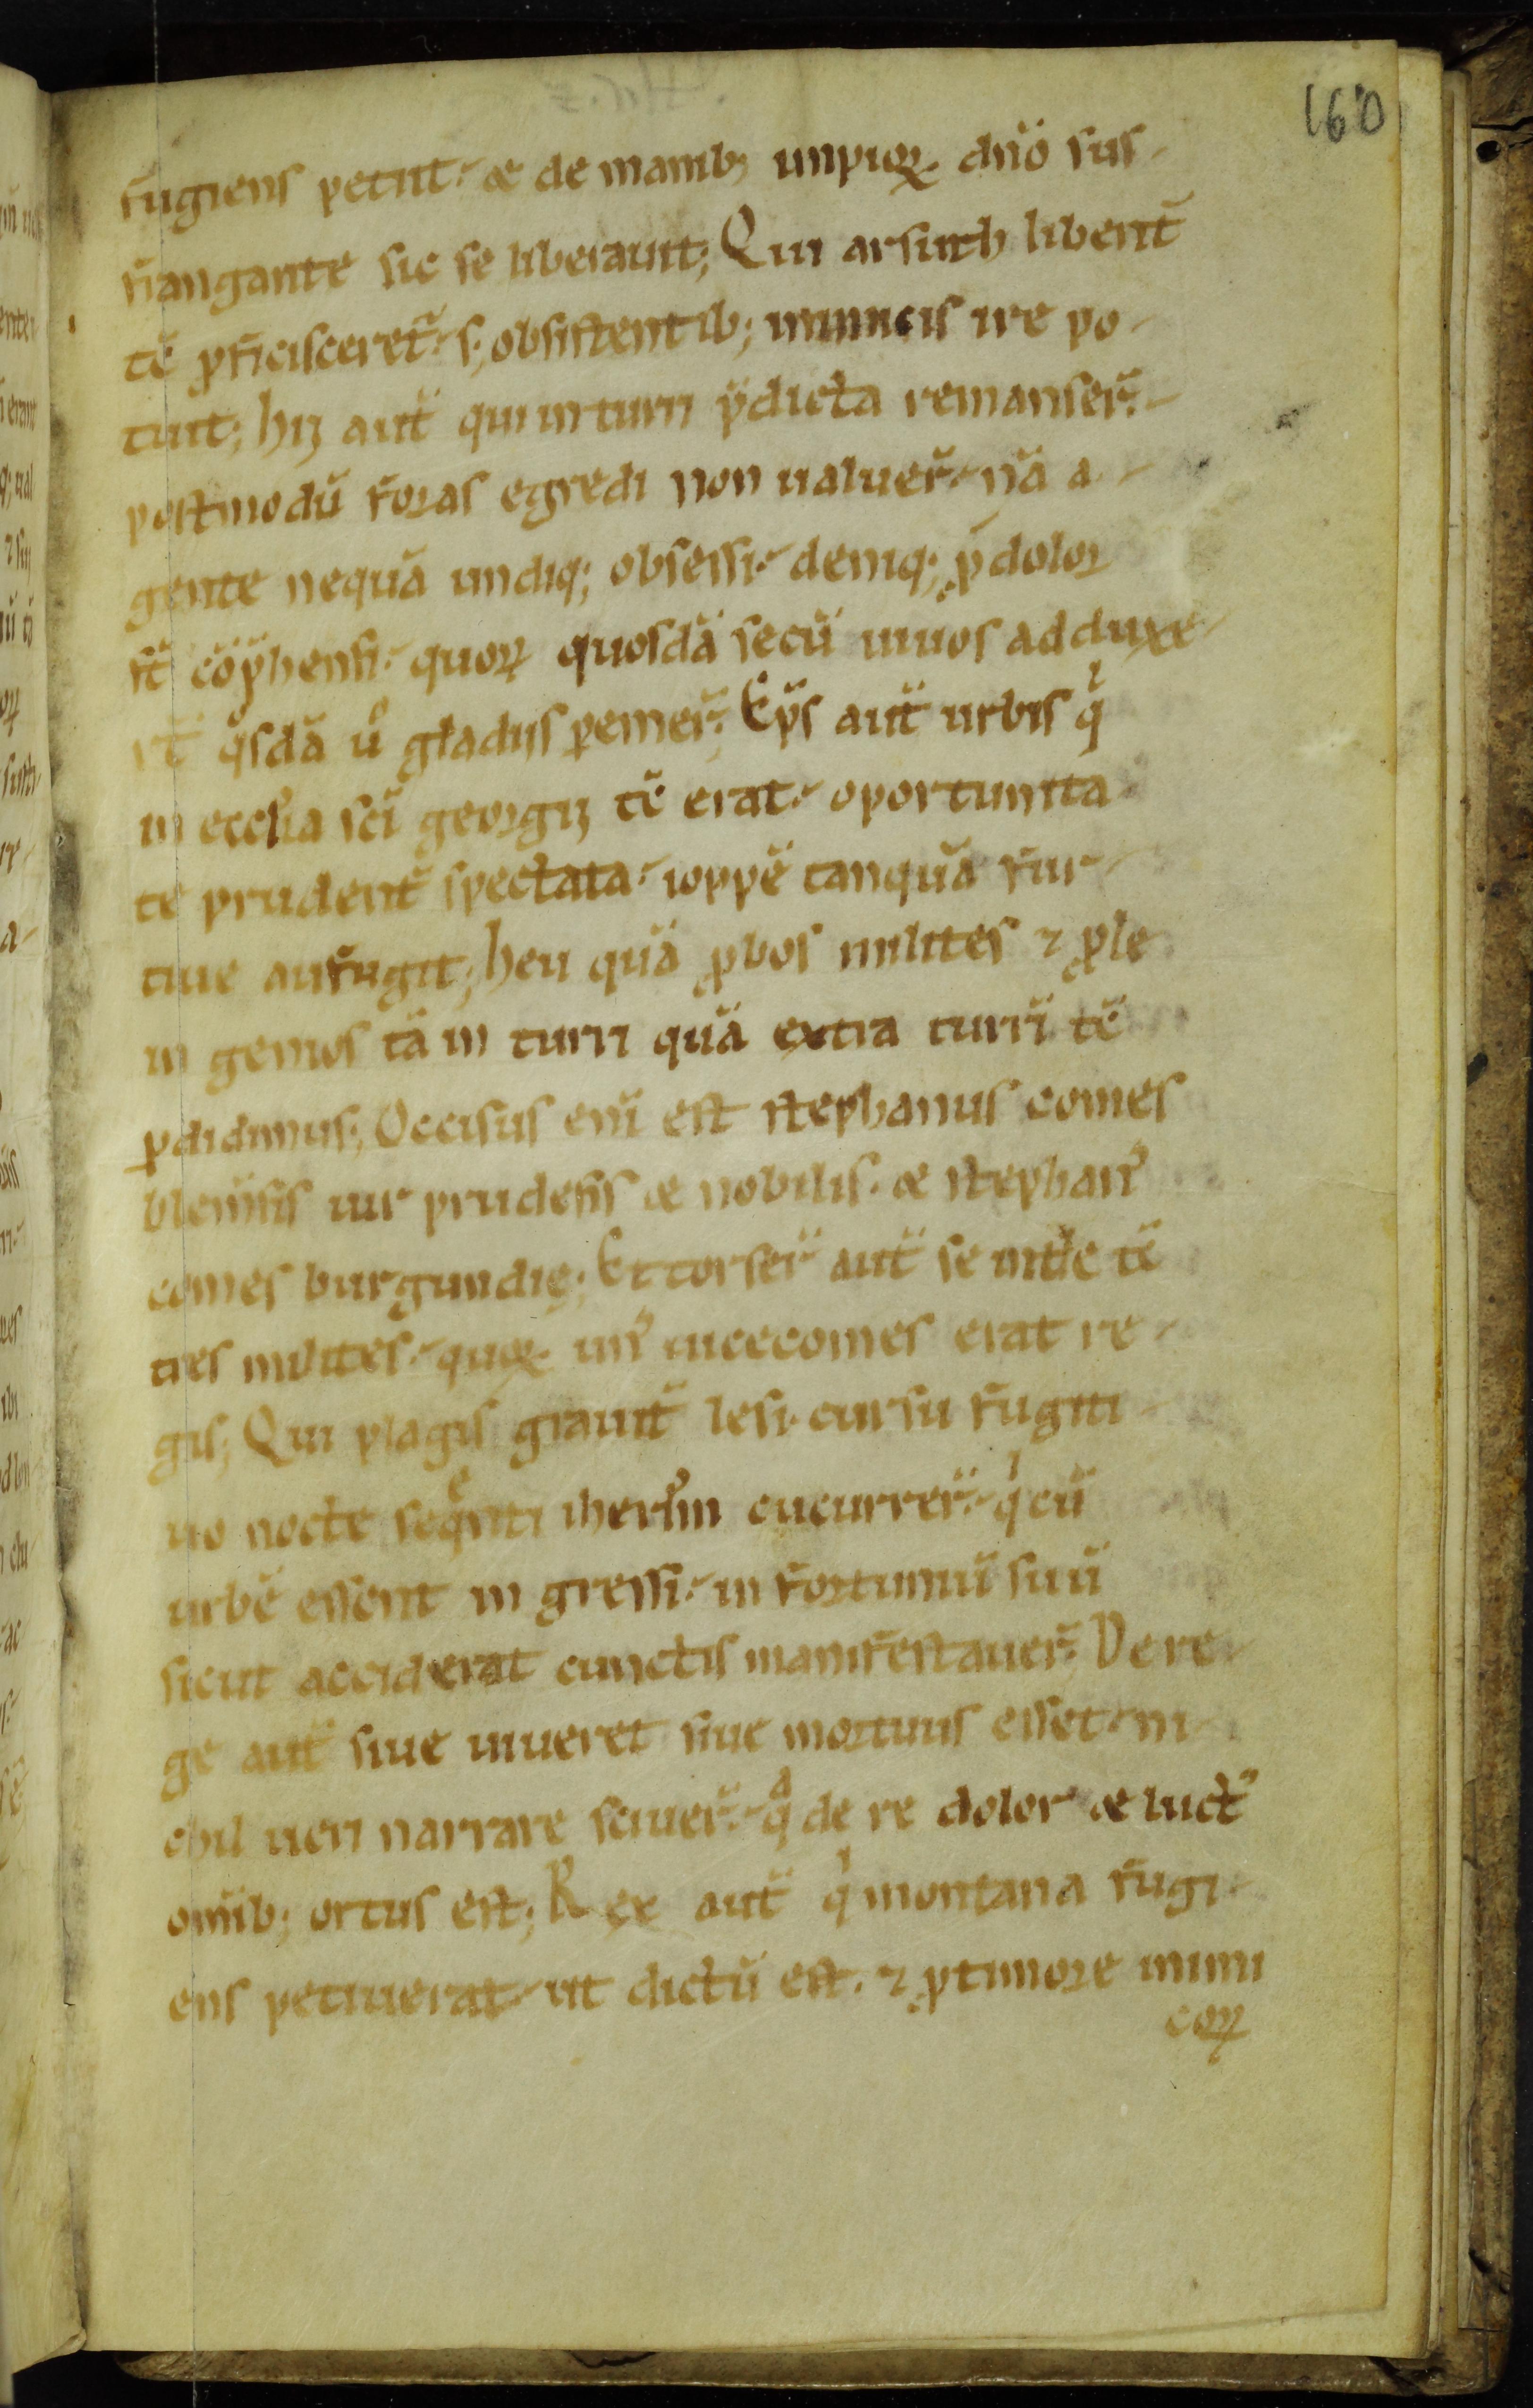 160
fugiens petiit. & de manib; impioꝝ. dn̄o suf-
fragante sic se liberauit; Qui arsuth libent̄
tc̄ ꝓficisceret̃. s; obsistentib; inimicis ire po-
tuit; hij aut̄ qui in turri p̄dicta remanser̄.
postmodū foras egredi non ualuer̄. nā a
gente nequā undiq; obsessi. deniq; ꝓ dolor
st̄ cōp̄hensi. quoꝝ quosdā secū uiuos adduxe-
rt̄ qͦsdā ũ gladiis ꝑemer̄. Ep̄s aut̄ urbis qⁱ
in eccłia sc̄i georgij tc̄ erat. oportunita
te prudent̄ spectata. ioppē tanquā fur-
tiue aufugit; heu quā ꝓbos milites ⁊ ꝓle
in genios tā in turri quā extra turrī tc̄
ꝑdidimus; Occisus enī est stephanus comes
blen̄sis uir prudens & nobilis. & stephanꝰ
comes burgundie; Ettorser̄ aut̄ se int̄ie tc̄
tres milites. quoꝝ. unꝰ uicecomes erat re-
gis; Qui plagis grauit̄ lesi. cursu fugiti
uo nocte seqͤnti iherłm cucurrer̄. qⁱ cū
urbē essent in gressi. in fortuniū suū
sicut acciderat cunctis manifestauer̄. De re-
ge aut̄ siue uiueret siue mortuus esset. ni-
chil ueri narrare sciuer̄. qᵃ de re dolor & luctꝰ
om̄ib; ortus est; Rex aut̄ qⁱ montana fugi-
ens petiuerat. ut dictū est. ⁊ ꝓ timore inimi
coꝝ